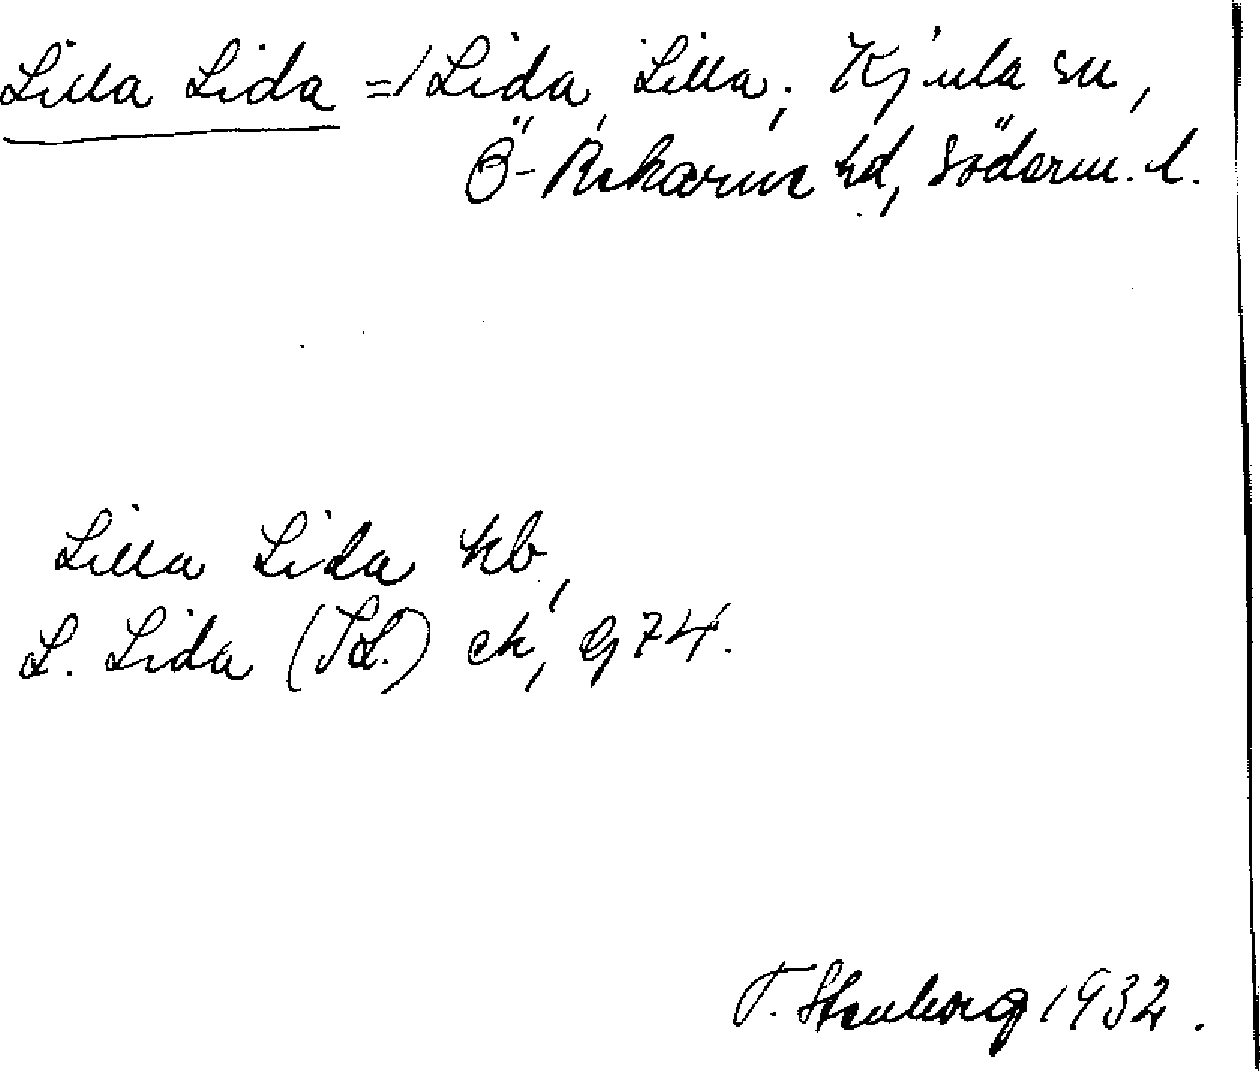 Lilla Lida = Lida, Lilla, Kjula sn,
Ö- Rekarne hd, Söderm. l.
Lilla Lida kb,
L. Lida (St.) ek, g 74.
T. Stenborg 1932.